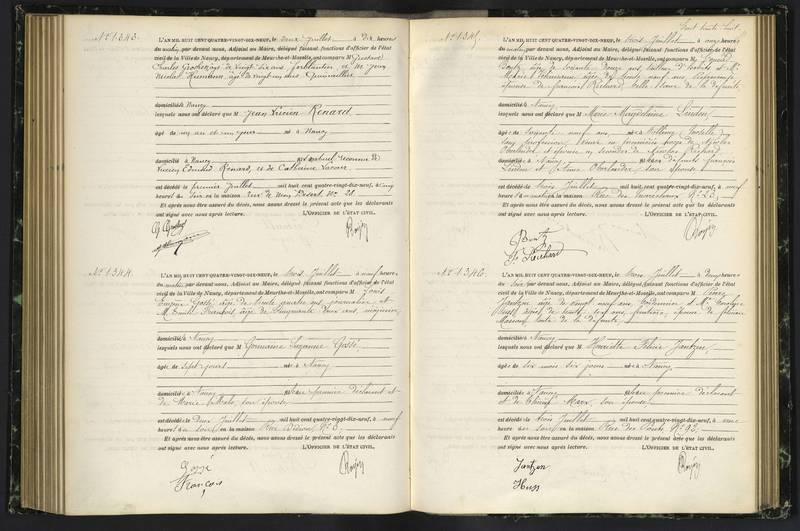 N° 1343.
L'AN MIL HUIT CENT QUATRE-VINGT-DIX-NEUF, le deux Juillet à dix heures
du matin, par devant nous, Adjoint au Maire, délégué faisant fonctions d'officier de l'état
civil de la Ville de Nancy, département de Meurthe-et-Moselle, ont comparu M Gustave
âgé de vingt six ans, ferblantier, et M. Jean
Nicolas Humbert, âgé de vingt
domiciliés à Nancy
lesquels nous ont déclaré que M Jean Lucien Renard
âgé de un an et né à Nancy
domicilié à Nancy
Lucien Edmond Renard, et de Catherine
est décédé le premier Juillet mil huit cent quatre-vingt-dix-neuf, à cinq
heures du soir en la maison rue du Mon Désert N° 28.
Et après nous être assuré du décès, nous avons dressé le présent acte que les déclarants
ont signé avec nous après lecture. L'OFFICIER DE L'ÉTAT CIVIL.
N° 1344.
L'AN MIL HUIT CENT QUATRE-VINGT-DIX-NEUF, le trois Juillet à neuf heures
du matin, par devant nous, Adjoint au Maire, délégué faisant fonctions d'officier de l'état
civil de la Ville de Nancy, département de Meurthe-et-Moselle, ont comparu M Louis
Eugène Gossé, âgé de trente quatre ans, journalier, et
M. Emile François, âgé de cinquante deux ans, magasinier
domiciliés à Nancy
lesquels nous ont déclaré que M Germaine Suzanne Gossé
âgée de sept jours née à Nancy
domiciliée à Nancy fille du premier déclarant et
de Marie son épouse
est décédée le Deux Juillet mil huit cent quatre-vingt-dix-neuf, à neuf
heures du soir en la maison Rue N° 3.
Et après nous être assuré du décès, nous avons dressé le présent acte que les déclarants
ont signé avec nous après lecture. L'OFFICIER DE L'ÉTAT CIVIL.
Gossé
François
Cent trente huit.
N° 1345.
L'AN MIL HUIT CENT QUATRE-VINGT-DIX-NEUF, le trois Juillet à onze heures
du matin, par devant nous, Adjoint au Maire, délégué faisant fonctions d'officier de l'état
civil de la Ville de Nancy, département de Meurthe-et-Moselle, ont comparu M
âgé de soixante douze ans, tailleur d'habits et Mme
Marie âgée de trente neuf ans
épouse de François Richard, belle sœur de la défunte
domiciliés à Nancy
lesquels nous ont déclaré que M Marie Magdeleine Linden
âgée de soixante neuf ans, née à (Moselle)
sans profession, veuve en premières noces de Nicolas
Oberlander et épouse en secondes de Nicolas Richard
domiciliée à Nancy fille des défunts François
Linden et Oberlander, son épouse
est décédée le trois Juillet mil huit cent quatre-vingt-dix-neuf, à neuf
heures du matin en la maison Rue N° 33
Et après nous être assuré du décès, nous avons dressé le présent acte que les déclarants
ont signé avec nous après lecture. L'OFFICIER DE L'ÉTAT CIVIL.
Richard
N° 1346.
L'AN MIL HUIT CENT QUATRE-VINGT-DIX-NEUF, le trois Juillet à deux heures
du soir, par devant nous, Adjoint au Maire, délégué faisant fonctions d'officier de l'état
civil de la Ville de Nancy, département de Meurthe-et-Moselle, ont comparu M Pierre
Jantzen âgé de vingt neuf ans, cordonnier et Me
Huss âgée de trente sept ans, fruitière, épouse de
tante de la défunte
domiciliés à Nancy
lesquels nous ont déclaré que M Henriette Félicie Jantzen,
âgée de six mois six jours née à Nancy
domiciliée à Nancy fille du premier déclarant
et de Marx, son épouse
est décédée le trois Juillet mil huit cent quatre-vingt-dix-neuf, à une
heure du soir en la maison Rue des Ponts, N° 93
Et après nous être assuré du décès, nous avons dressé le présent acte que les déclarants
ont signé avec nous après lecture. L'OFFICIER DE L'ÉTAT CIVIL.
Jantzen
Huss